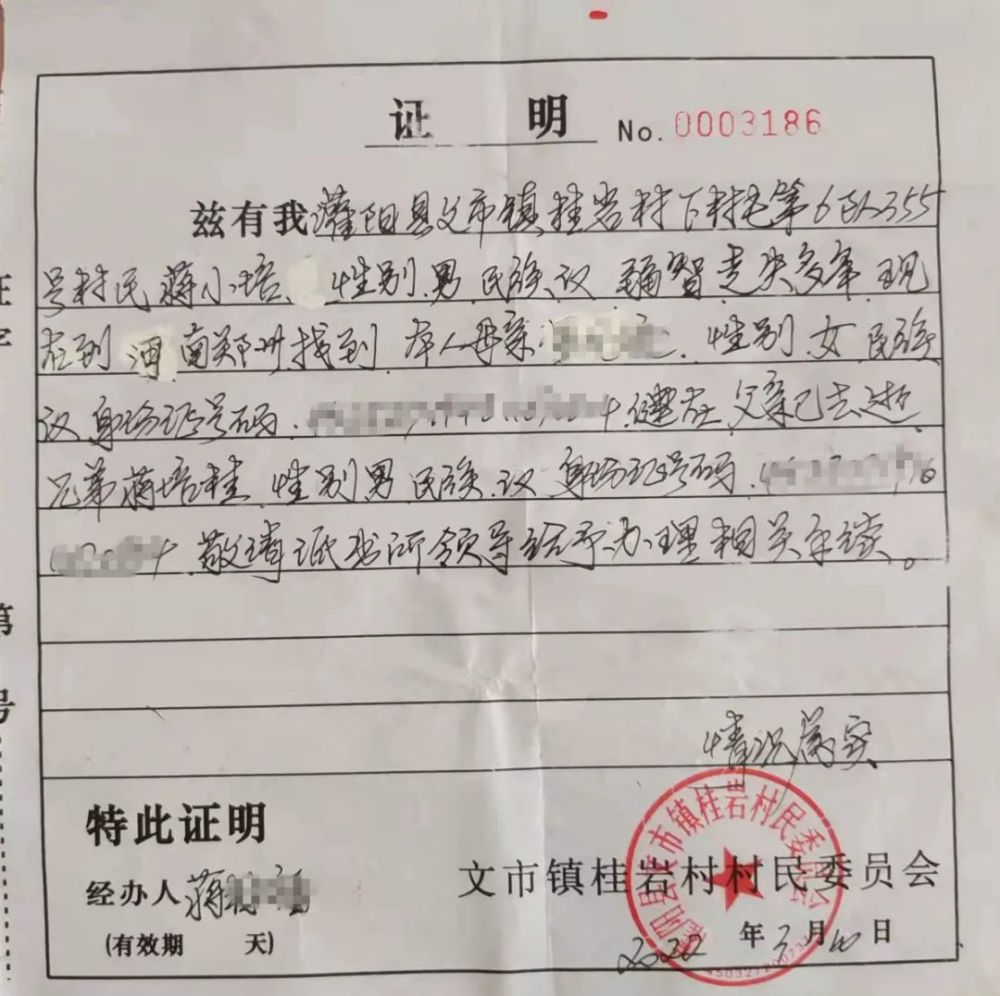 证 明 No.0003186
兹有我灌阳县文市镇桂岩村下村屯第6队355
号村民蒋小培 性别男 民族汉 弱智走失多年 现
在到河南郑州找到 本人母亲 性别女 民族
汉身份证号码 健在 父亲已去逝
兄弟蒋培桂 性别男 民族汉 身份证号码
敬请派出所领导给予办理相关手续。
情况属实
特此证明
文市镇桂岩村村民委员会
经办人蒋
(有效期 天)
2022年3月10日
灌阳县文市镇桂岩村民委员会
证
字
第
号